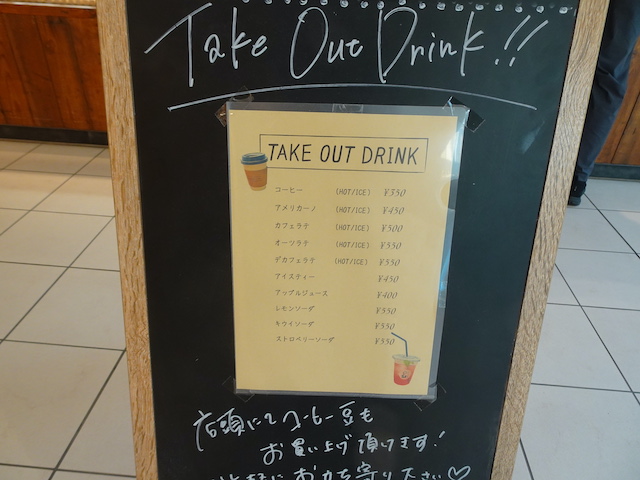 Take Out Drink!!
TAKE OUT DRINK
コーヒー (HOT/ICE) ¥350
アメリカーノ (HOT/ICE) ¥450
カフェラテ (HOT/ICE) ¥500
オーツラテ (HOT/ICE) ¥550
デカフェラテ (HOT/ICE) ¥550
アイスティー ¥450
アップルジュース ¥400
レモンソーダ ¥550
キウイソーダ ¥550
ストロベリーソーダ ¥550
店頭にてコーヒー豆も
お買い上げ頂けます!
お立ち寄り下さい♡